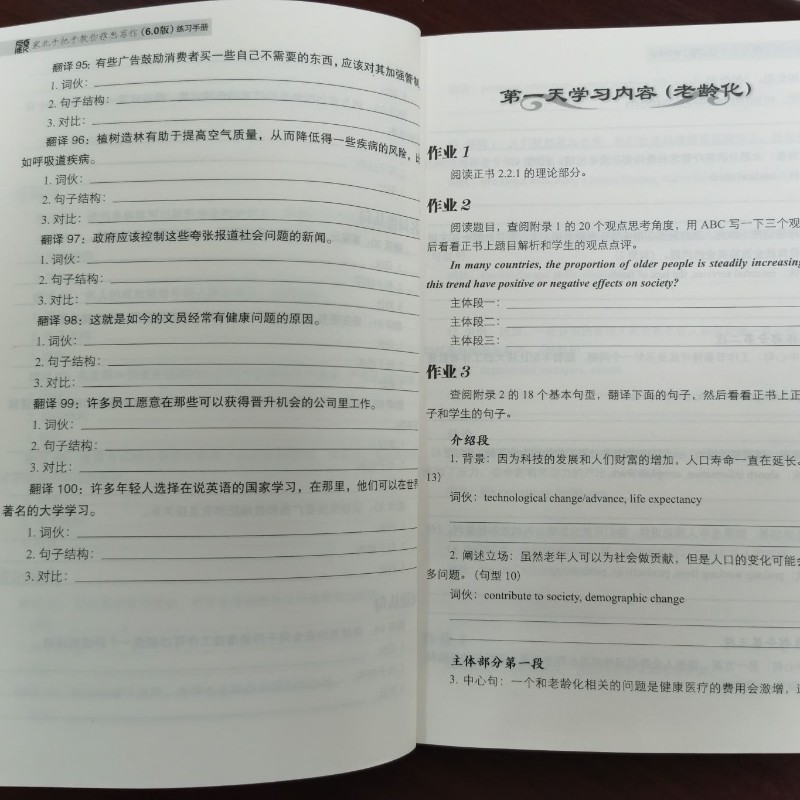 顾家北手把手教你雅思写作(6.0版)练习手册
翻译 95：有些广告鼓励消费者买一些自己不需要的东西，应该对其加强管制
1. 词伙：
2. 句子结构：
3. 对比：
翻译 96：植树造林有助于提高空气质量，从而降低得一些疾病的风险，比
如呼吸道疾病。
1. 词伙：
2. 句子结构：
3. 对比：
翻译 97：政府应该控制这些夸张报道社会问题的新闻。
1. 词伙：
2. 句子结构：
3. 对比：
翻译 98：这就是如今的文员经常有健康问题的原因。
1. 词伙：
2. 句子结构：
3. 对比：
翻译 99：许多员工愿意在那些可以获得晋升机会的公司里工作。
1. 词伙：
2. 句子结构：
3. 对比：
翻译 100：许多年轻人选择在说英语的国家学习，在那里，他们可以在世界
著名的大学学习。
1. 词伙：
2. 句子结构：
3. 对比：
第一天学习内容（老龄化）
作业 1
阅读正书 2.2.1 的理论部分。
作业 2
阅读题目，查阅附录 1 的 20 个观点思考角度，用 ABC 写一下三个观
后看看正书上题目解析和学生的观点点评。
In many countries, the proportion of older people is steadily increasing
this trend have positive or negative effects on society?
主体段一：
主体段二：
主体段三：
作业 3
查阅附录 2 的 18 个基本句型，翻译下面的句子，然后看看正书上正
子和学生的句子。
介绍段
1. 背景：因为科技的发展和人们财富的增加，人口寿命一直在延长。
13）
词伙：technological change/advance, life expectancy
2. 阐述立场：虽然老年人可以为社会做贡献，但是人口的变化可能会
多问题。（句型 10）
词伙：contribute to society, demographic change
主体部分第一段
3. 中心句：一个和老龄化相关的问题是健康医疗的费用会激增，这